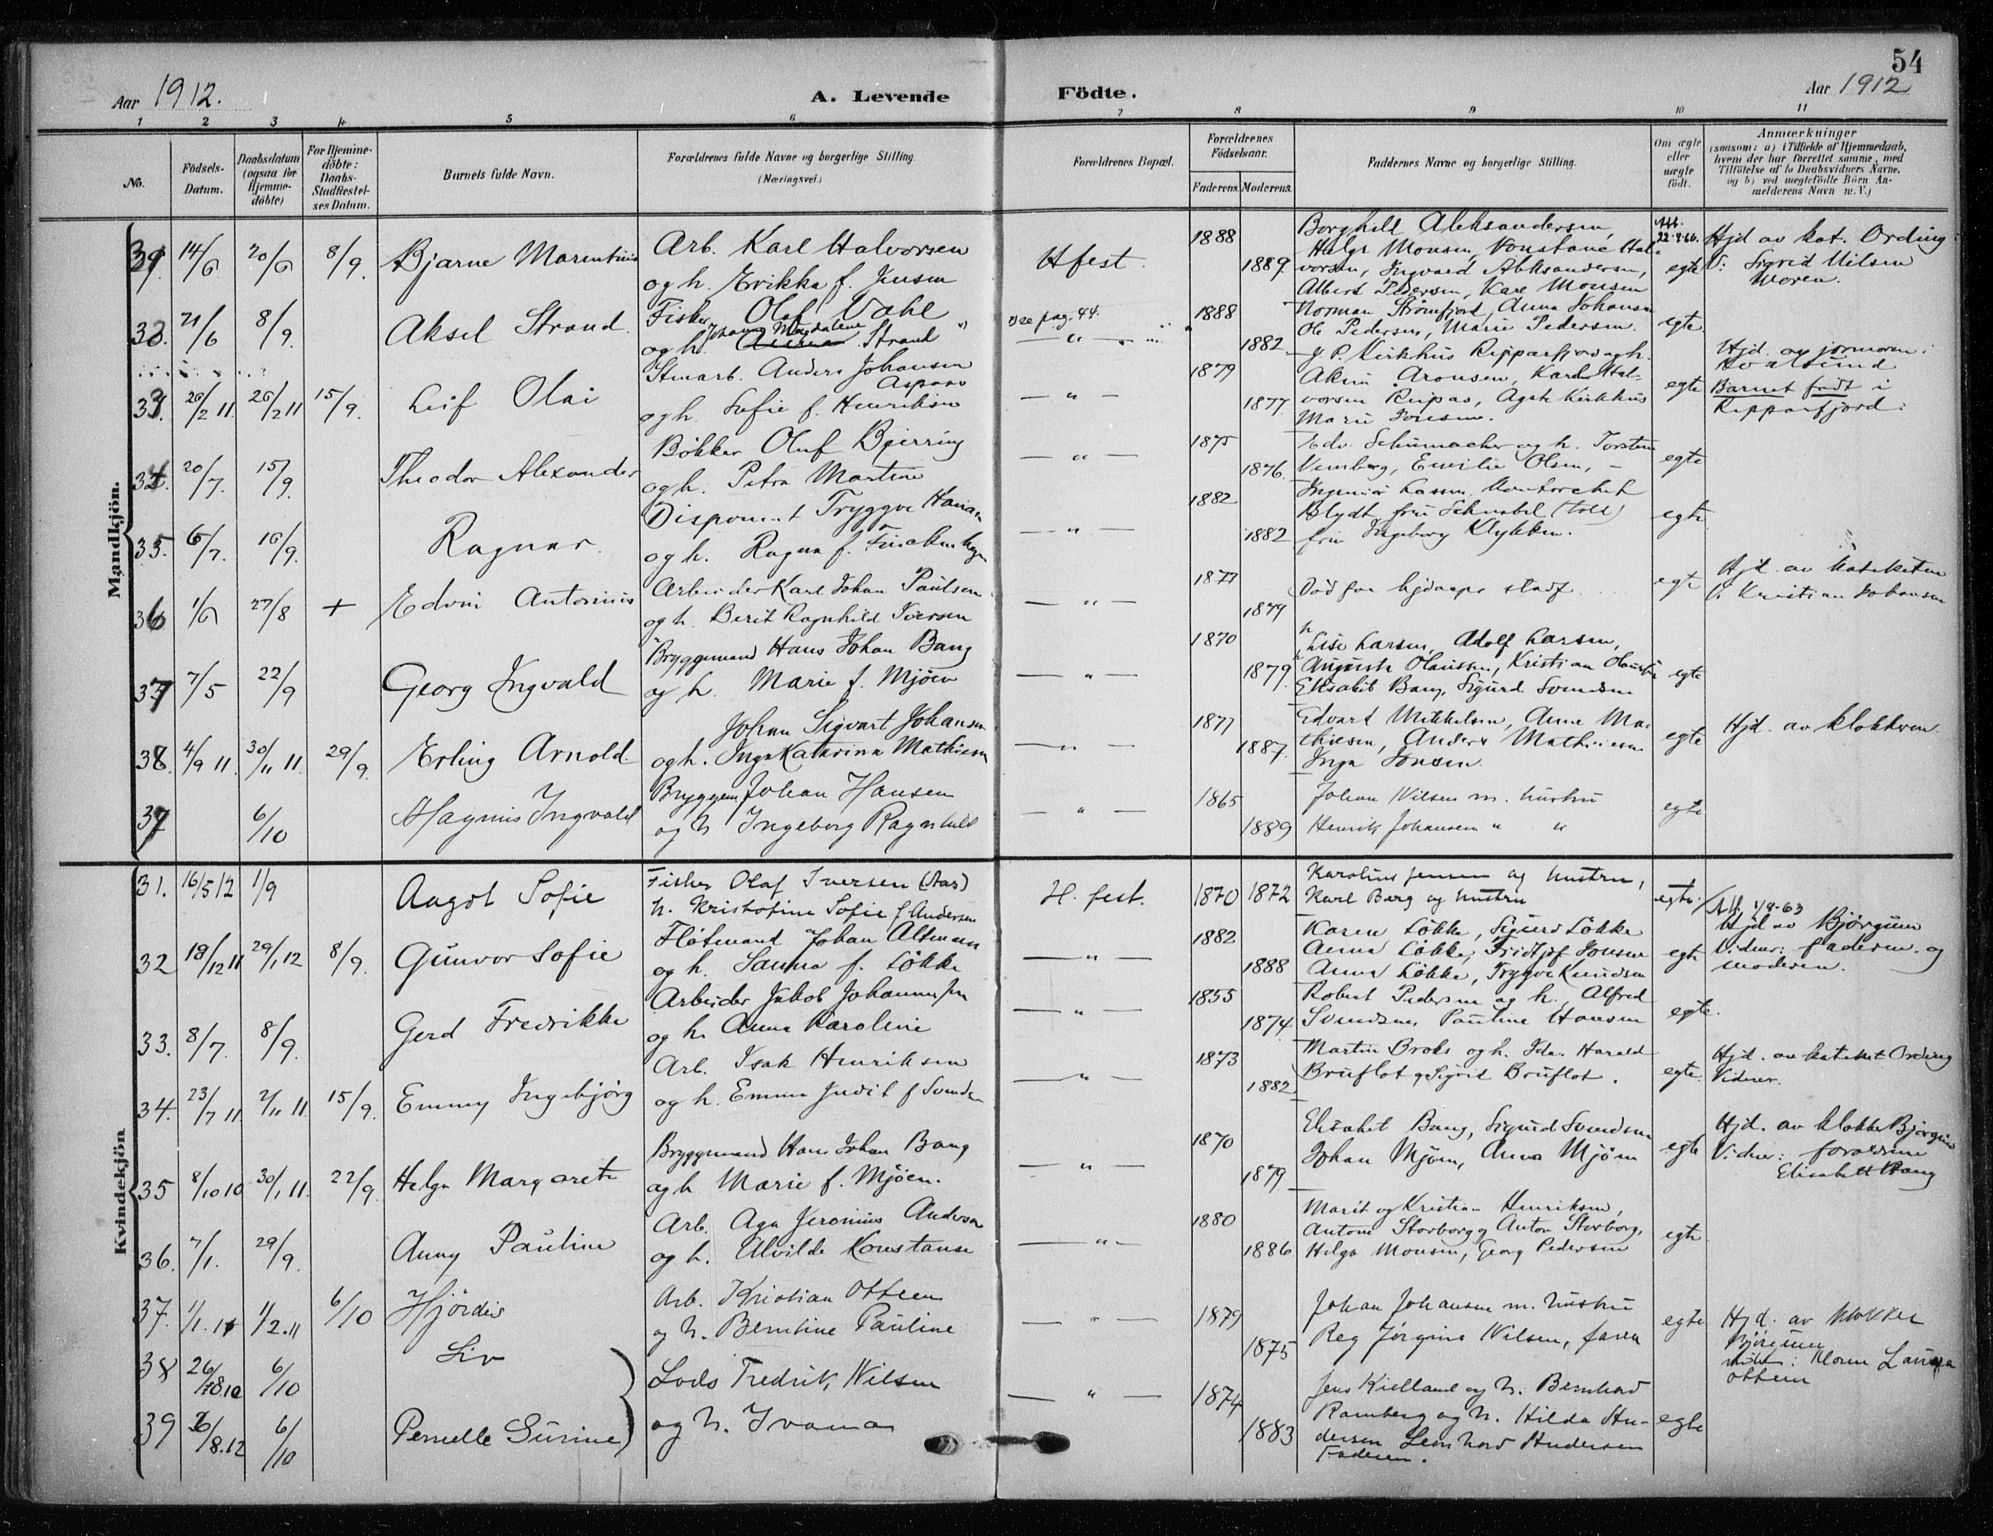 54
Aar 1912.
A. Levende
Födte.
Aar 1912
1 2 3 4 5 6 7 8 9 10 11
No.
Födsels-
Datum.
Daabsdatum
(ogsaa for
Hjemme-
döbte)
For Hjemme-
döbte:
Daabs-
Stadfæstel-
ses Datum.
Barnets fulde Navn.
Forældrenes fulde Navne og borgerlige Stilling.
(Næringsvei.)
Forældrenes Bopæl.
Forældrenes
Födselsaar.
Faderens. Moderens.
Faddernes Navne og borgerlige Stilling.
Om ægte
eller
uægte
födt.
Anmærkninger
(saasom: a) i Tilfælde af Hjemmedaab,
hvem der har forrettet samme, med
Tilföielse af to Daabsvidners Navne,
og b) ved uægtefödte Börn An-
melderens Navn m. V.)
Mandkjön.
14/6 20/6 8/9. Bjarne Marentius
Arb. Karl Halvorsen
og h. Erikka f. Jensen
Hfest.
1888
1889
Borghill Aleksandersen,
Helge Monsen, Konstanse Hal-
vorsen, Ingvald Aleksandersen,
Albert Pedersen, Karl Monsen
22-8-66.
egte
Hjd av kat. Ording
V: Sigrid Nilsen
21/6 8/9. Aksel Strand.
Fisker Olaf Dahl
og h. Johanna Magdalene Strand
Se pag. 44.
1888
1882
Norman Strømfjord, Anna Johansen
Ole Pedersen, Marie Pedersen.
egte
26/2 11 26/2 11 15/9. Leif Olai
Anders Johansen
og h. Sofie f. Henriksen
1879
1877
Marie Jensen.
egte
Barnet født i
Repparfjord.
34. 20/7. 15/9. Theodor Alexander
Bøkker Oluf Bjerring
og h. Petra Martine
1875
1876.
Edv. Schumacher og h. Torsten
Emilie Olsen,
egte
35. 6/7. 16/9. Ragnar.
Disponent Tryggve Hansen
og h. Ragna f.
1882
1882
Ingeniør
fru Ingeborg Klykken.
egte
36 1/6 27/8 + Edvin Antonius
Arbeider Karl Johan Paulsen
og h. Berit Ragnhild Iversen
1877
1879
Død før hjdaaps stadf.
egte
Hjd. av kateketen
V. Kristian Johansen
37 7/5 22/9 Georg Ingvald
Bryggemand Hans Johan Bang
og h. Marie f. Mjøen
1870
1879
Lise Larsen, Adolf Larsen,
Augusta Olaussen, Kristian Olaussen
Elisabet Bang, Sigurd Svendsen
egte
38. 4/9 11. 30/11 11 29/9. Erling Arnold.
Johan Sigvart Johansen
og h. Inga Katarina Mathisen
1877
1887.
Edvart Mikkelsen, Anne Ma-
thiesen, Anders Mathiesen
Inga Jensen.
egte
Hjd. av klokkeren.
6/10 Magnus Ingvald
Bryggem Johan Hansen
og h Ingeborg Ragnhild
1865
1889
Johan Nilsen m. hustru
Henrik Johansen " "
egte
Kvindekjön
31. 16/5 12 1/9 Aagot Sofie
Fisker Olaf Iversen (Aas)
h. Kristofine Sofie f Andersen
H. fest.
1870 1872
Karolius Jensen og hustru,
Karl Berg og hustru
egte.
1/8-63
32 18/12 11 29/1 12 8/9. Gunvor Sofie
Johan Altmann
og h. Sanna f. Løkke
1882
1888
Karen Løkke, Sigurd Løkke
Anna Løkke, Fridtjof Jensen
Anna Løkke, Trygve Knudsen
egte
Hjd av Bjørgum
Vidner: faderen og
moderen.
33. 8/7. 8/9. Gerd Fredrikke
Arbeider Jakob Johannesen
og h. Anna Karoline
1855
1874
Robert Pedersen og h. Alfred
Svendsen, Pauline Hansen
egte.
34. 23/7 11 2/11 11. 15/9. Emmy Ingebjørg
Arb. Isak Henriksen
og h. Emma Judit f Svendsen
1873
1882
Martin Broks og h. Ida. Harald
Bruflot og Sigrid Bruflot.
egte.
Hjd. av kateket Ording
Vidner.
35 8/10 10 30/1 11. 22/9. Helga Margarete
Bryggemand Hans Johan Bang
og h Marie f. Mjøen.
1870
1879
Elisabet Bang, Sigurd Svendsen
Johan Mjøen, Anna Mjøen
egte
Hjd. av klokker Bjørgum
Vidner: forældrene
Elisabeth Bang
36. 7/1. 29/9. Anny Pauline
Arb. Aga Jeronius Andersen
og h. Alvilde Konstanse
1880
1886
Marit og Kristian Henriksen,
Antone Storborg og Anton Storborg,
Helga Monsen, Georg Pedersen
egte.
37. 1/1.11 1/2.11 6/10 Hjørdis
Arb. Kristian Ottem
og h. Berntine Pauline
1879
1875
Johan Johansen m. hustru
Reg Jørgine Nilsen, faren
egte
Hjd. av klokker
Bjørgum
Ottem
38 26/8.12 6/10 Liv
39 26/8.12 6/10 Pernelle Surine
Lods Fredrik Nilsen
og h. Ivana
1874
1883
Jens Kielland og h. Bernhard
Ramberg og h. Hilda An-
dersen Leonhard Andersen
Faderen.
egte